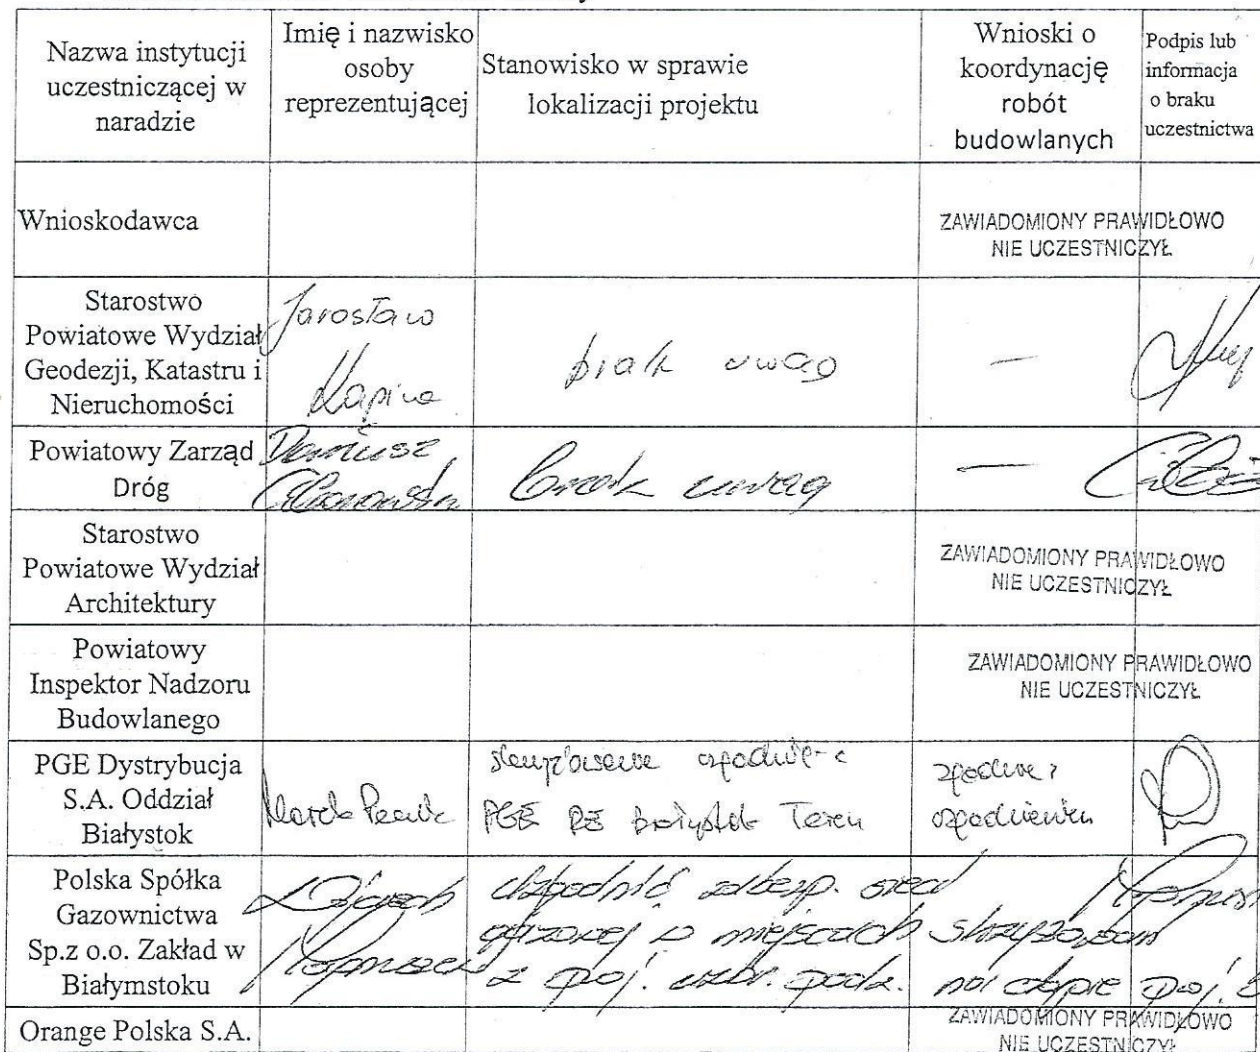 Nazwa instytucji
uczestniczącej w
naradzie
Imię i nazwisko
osoby
reprezentującej
Stanowisko w sprawie
lokalizacji projektu
Wnioski o
koordynację
robót
budowlanych
Podpis lub
informacja
o braku
uczestnictwa
Wnioskodawca
ZAWIADOMIONY PRAWIDŁOWO
NIE UCZESTNICZYŁ
Starostwo
Powiatowe Wydział
Geodezji, Katastru i
Nieruchomości
Jarosław
brak uwag
—
Powiatowy Zarząd
Dróg
Dariusz
brak uwag
—
Starostwo
Powiatowe Wydział
Architektury
ZAWIADOMIONY PRAWIDŁOWO
NIE UCZESTNICZYŁ
Powiatowy
Inspektor Nadzoru
Budowlanego
ZAWIADOMIONY PRAWIDŁOWO
NIE UCZESTNICZYŁ
PGE Dystrybucja
S.A. Oddział
Białystok
Marek
PGE RE Białystok Teren
Polska Spółka
Gazownictwa
Sp.z o.o. Zakład w
Białymstoku
Wojciech
uzgodnić zabezp. sieci
gazowej w miejscach skrzyżowań
z proj. uzbr. podz. na etapie proj. b
Orange Polska S.A.
ZAWIADOMIONY PRAWIDŁOWO
NIE UCZESTNICZYŁ